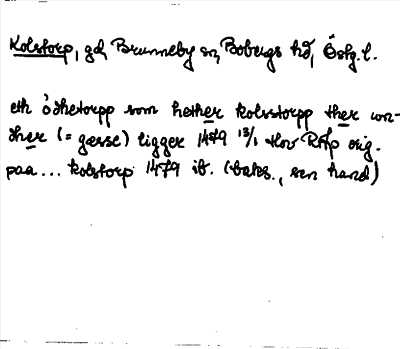 Kolstorp, gd, Brunneby sn, Bobergs hd, Östg. l.
eth ödhetorpp som hether kolvstorpp ther won-
dher (= gærse) ligger 1479 13/1 RAp orig.
paa... kolstorp 1479 ib. (baks., sen hand)